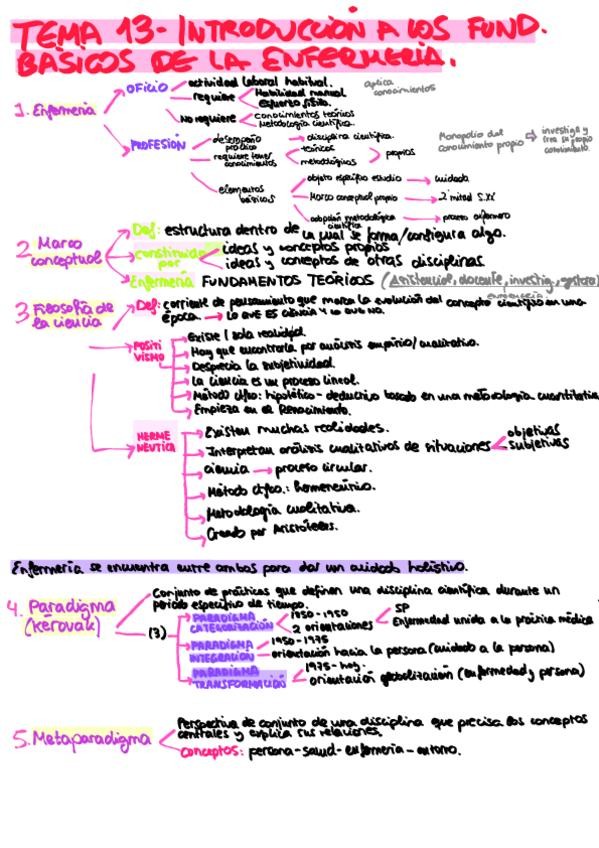 TEMA 13- INTRODUCCIÓN A LOS FUND.
BÁSICOS DE LA ENFERMERÍA.
1. Enfermería
OFICIO
actividad laboral habitual.
requiere
Habilidad manual
esfuerzo físico.
aplica
conocimientos
No requiere
conocimientos teóricos
Metodología científica.
PROFESIÓN
desempeño
práctico
disciplina científica.
requiere tener
conocimientos
teóricos
metodológicos
propios
Monopolio del
conocimiento propio
investiga y
crea su propio
conocimiento.
elementos
básicos
objeto específico estudio
cuidado
Marco conceptual propio
2ª mitad S.XX
adopción metodológica
científica
proceso enfermero
2 Marco
conceptual
Def: estructura dentro de
la cual se forma/configura algo.
constituido
por
ideas y conceptos propios
ideas y conceptos de otras disciplinas.
Enfermería FUNDAMENTOS TEÓRICOS (Asistencial, docente, investig, gestora)
enfermería
3 Filosofía de
la ciencia
Def: corriente de pensamiento que marca la evolución del concepto científico en una
época. → LO QUE ES CIENCIA Y LO QUE NO.
POSITI
VISMO
Existe 1 sola realidad.
Hay que encontrarla por análisis empírico/cualitativo.
Desprecia la subjetividad.
La ciencia es un proceso lineal.
Método ctfco: hipotético-deductivo basado en una metodología cuantitativa
Empieza en el Renacimiento.
HERME
NÉUTICA
Existen muchas realidades.
Interpretan análisis cualitativos de situaciones
objetivas
subjetivas
ciencia → proceso circular.
Método ctfco.: hermenéutico.
Metodología cualitativa.
Creado por Aristóteles.
Enfermería se encuentra entre ambos para dar un cuidado holístico.
4. Paradigma
(Kerouak)
Conjunto de prácticas que definen una disciplina científica durante un
periodo específico de tiempo.
(3)
PARADIGMA
CATEGORIZACIÓN
1850-1950
2 orientaciones
SP
Enfermedad unida a la práctica médica
PARADIGMA
INTEGRACIÓN
1950-1975
orientación hacia la persona (cuidado a la persona)
PARADIGMA
TRANSFORMACIÓN
1975-hoy.
orientación globalización (enfermedad y persona)
5. Metaparadigma
Perspectiva de conjunto de una disciplina que precisa los conceptos
centrales y explica sus relaciones.
conceptos: persona-salud-enfermería-entorno.